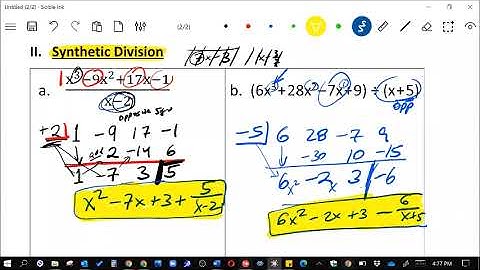 Untitled (2/2) - Scrble Ink
(2/2)
II. Synthetic Division
a. 1x³-9x²+17x-1
x-2
opposite sign
+2| 1 -9 17 -1
add 2 -14 6
1 -7 3 5
x² - 7x + 3 + 5/(x-2)
b. (6x³+28x²-7x+9) ÷ (x+5)
opp
-5| 6 28 -7 9
-30 10 -15
6x² -2x 3 -6
6x² - 2x + 3 - 6/(x+5)
4:27 PM